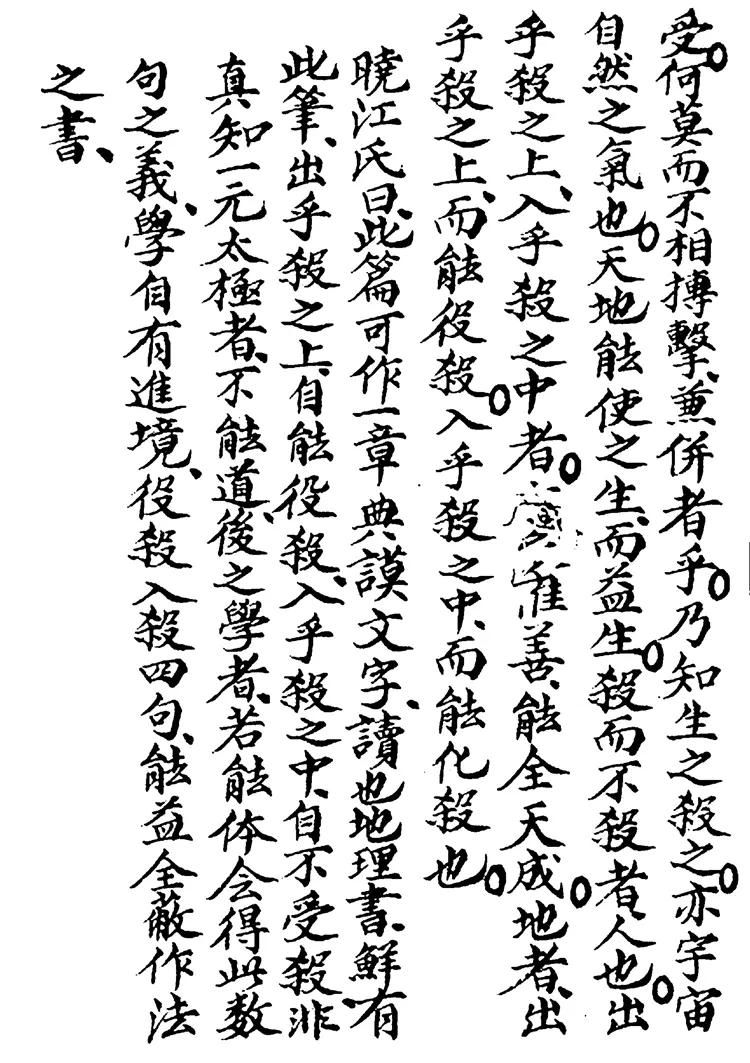 受。何莫而不相搏擊、兼併者乎。乃知生之殺之。亦宇宙
自然之氣也。天地能使之生、而益生。殺而不殺者、人也。出
乎殺之上、入乎殺之中者。惟善、能全天成。地者、出
乎殺之上、而能役殺。入乎殺之中、而能化殺也。
曉江氏曰、此篇可作一章典謨文字、讀也地理書、鮮有
此筆、出乎殺之上、自能役殺、入乎殺之中、自不受殺、非
真知一元太極者、不能道、後之學者、若能体会得此数
句之義、學自有進境、役殺入殺四句、能益全蔽作法
之書、